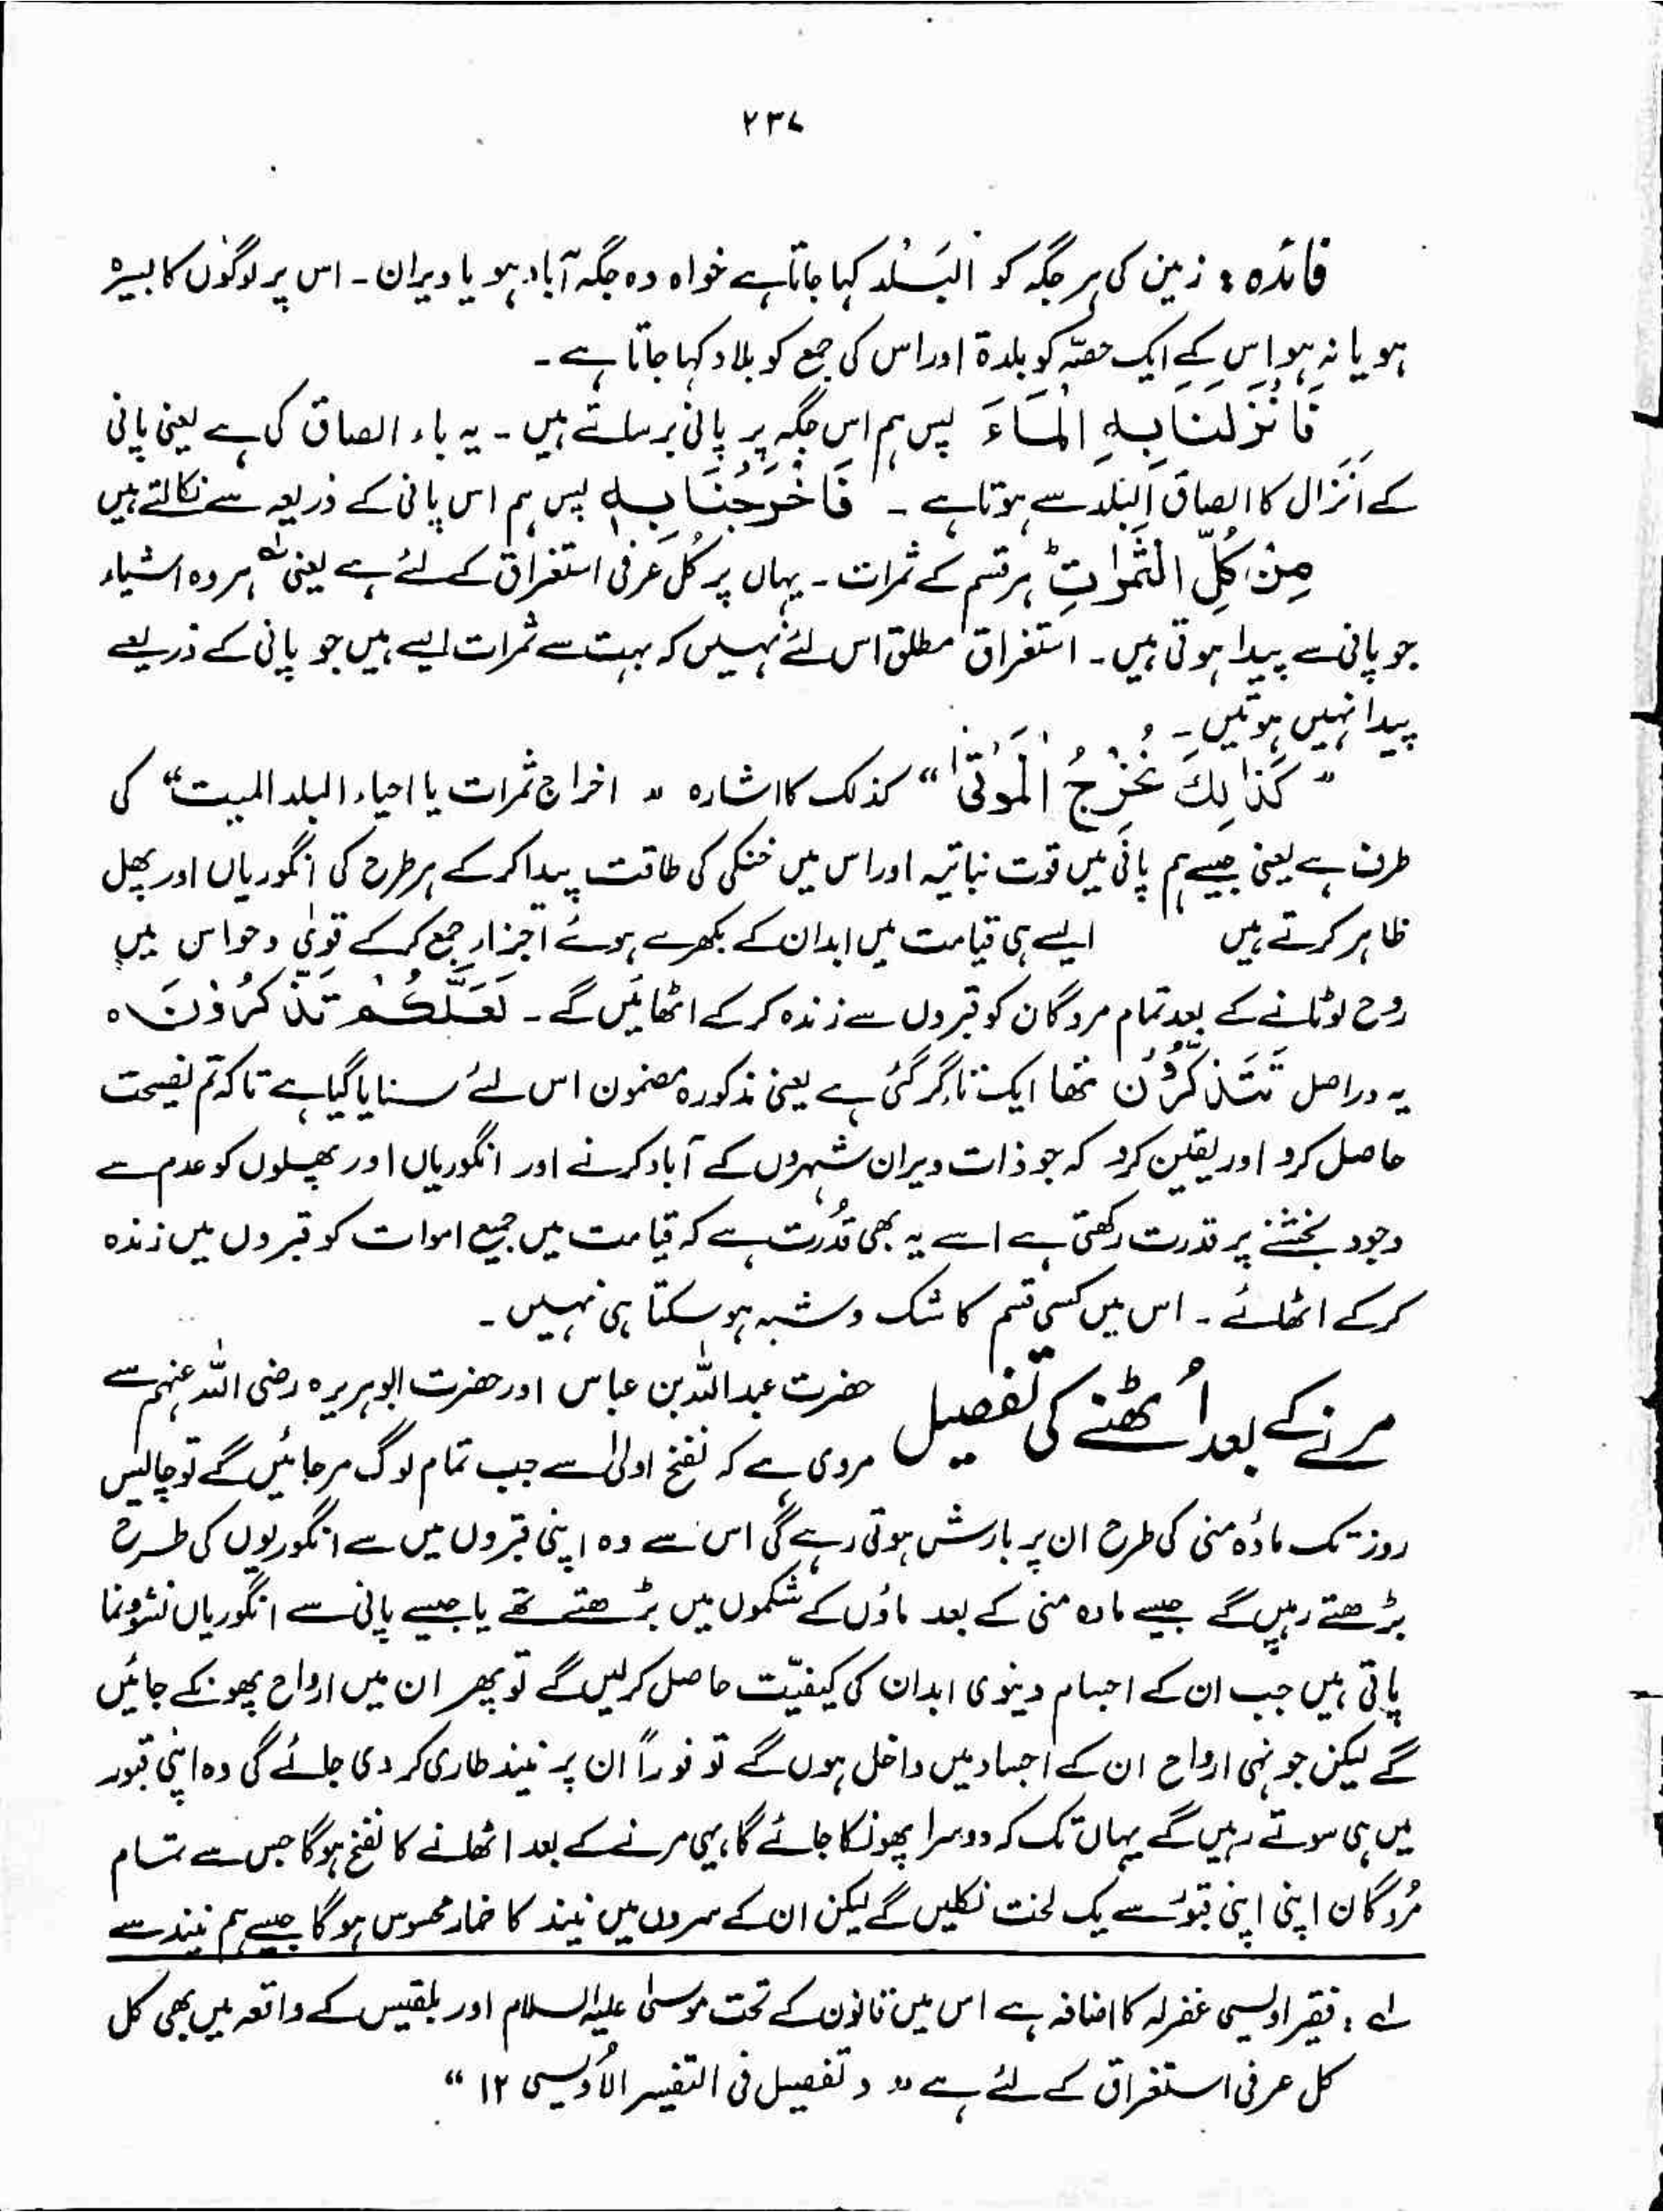 ۲۳۷
فائدہ : زمین کی ہر جگہ کو اَلبَلَد کہا جاتا ہے خواہ وہ جگہ آباد ہو یا ویران ۔ اس پر لوگوں کا بسیرہ
ہو یا نہ ہو اس کے ایک حصّہ کو بلدۃ اور اس کی جمع کو بلاد کہا جاتا ہے ۔
فَاَنْزَلْنَا بِهِ الْمَاءَ پس ہم اس جگہ پر پانی برساتے ہیں ۔ یہ باء الصاق کی ہے یعنی پانی
کے انزال کا الصاق البلد سے ہوتا ہے ۔ فَاَخْرَجْنَا بِهٖ پس ہم اس پانی کے ذریعہ سے نکالتے ہیں
مِنْ كُلِّ الثَّمَرٰتِ ؕ ہر قسم کے ثمرات ۔ یہاں پر کُل عرفی استغراق کے لئے ہے یعنی لہ ہر وہ اشیاء
جو پانی سے پیدا ہوتی ہیں ۔ استغراق مطلق اس لئے نہیں کہ بہت سے ثمرات ایسے ہیں جو پانی کے ذریعے
پیدا نہیں ہوتیں ۔
” كَذٰلِكَ نُخْرِجُ الْمَوْتٰى “ کذلک کا اشارہ ” اخراج ثمرات یا احیاء البلد المیت “ کی
طرف ہے یعنی جیسے ہم پانی میں قوت نباتیہ اور اس میں خنکی کی طاقت پیدا کر کے ہر طرح کی انگوریاں اور پھل
ظاہر کرتے ہیں ایسے ہی قیامت میں ابدان کے بکھرے ہوئے اجزاء جمع کر کے قویٰ و حواس میں
روح لوٹانے کے بعد تمام مردگان کو قبروں سے زندہ کر کے اٹھائیں گے ۔ لَعَلَّكُمْ تَذَكَّرُوْنَ ه
یہ دراصل تَتَذَكَّرُوْنَ تھا ایک تا گر گئی ہے یعنی مذکورہ مضمون اس لئے سنایا گیا ہے تاکہ تم نصیحت
حاصل کرو اور یقین کرو کہ جو ذات ویران شہروں کے آباد کرنے اور انگوریاں اور پھلوں کو عدم سے
وجود بخشنے پر قدرت رکھتی ہے اسے یہ بھی قُدرت ہے کہ قیامت میں جمیع اموات کو قبروں میں زندہ
کر کے اٹھائے ۔ اس میں کسی قسم کا شک و شبہ ہو سکتا ہی نہیں ۔
مرنے کے بعد اُٹھنے کی تفصیل حضرت عبداللہ بن عباس اور حضرت ابوہریرہ رضی اللہ عنہم سے
مروی ہے کہ نفخ اولیٰ سے جب تمام لوگ مر جائیں گے تو چالیس
روز تک مادّہ منی کی طرح ان پر بارش ہوتی رہے گی اس سے وہ اپنی قبروں میں سے انگوریوں کی طرح
بڑھتے رہیں گے جیسے مادہ منی کے بعد ماؤں کے شکموں میں بڑھتے تھے یا جیسے پانی سے انگوریاں نشوونما
پاتی ہیں جب ان کے اجسام دینوی ابدان کی کیفیّت حاصل کرلیں گے تو پھر ان میں ارواح پھونکے جائیں
گے لیکن جونہی ارواح ان کے اجساد میں داخل ہوں گے تو فوراً ان پر نیند طاری کر دی جائے گی وہ اپنی قبور
میں ہی سوتے رہیں گے یہاں تک کہ دوسرا پھونکا جائے گا، یہی مرنے کے بعد اٹھانے کا نفخ ہوگا جس سے تمام
مُردگان اپنی اپنی قبور سے یک لخت نکلیں گے لیکن ان کے سروں میں نیند کا خمار محسوس ہوگا جیسے ہم نیند سے
لے : فقیر اویسی غفرلہ کا اضافہ ہے اس میں قانون کے تحت موسیٰ علیہ السلام اور بلقیس کے واقعہ میں بھی کل
کل عرفی استغراق کے لئے ہے ” و تفصیل فی التفسیر الاُویسی ۱۲ “